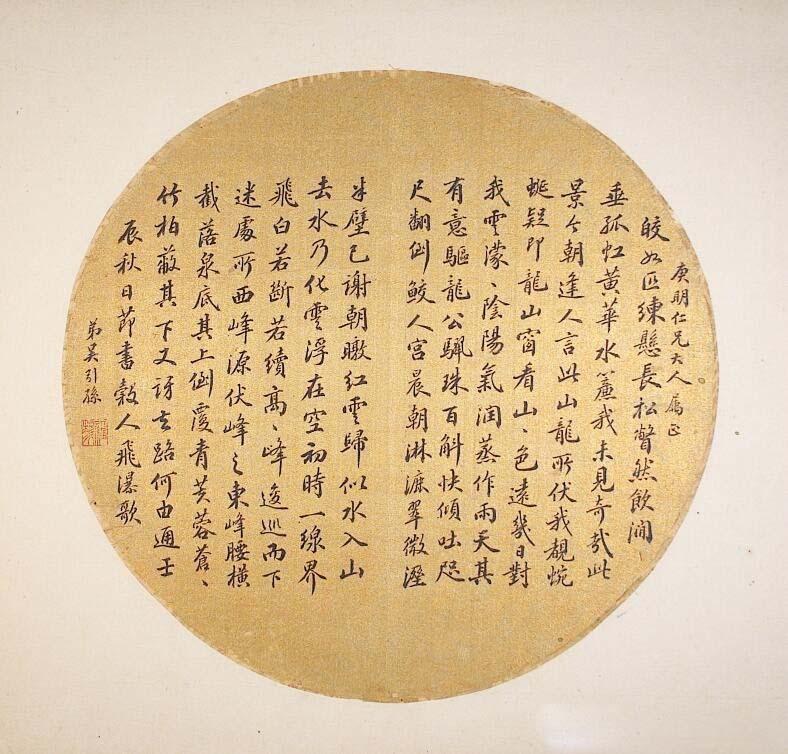 庚明仁兄大人屬正
皎如匹練懸長松瞥然飲澗
垂孤虹黄華水簾我未見奇哉此
景今朝逢人言此山龍所伏我覩蜿
蜒疑即龍山窗看山〻色遠幾日對
我雲濛〻陰陽氣潤蒸作雨天其
有意驅龍公驪珠百斛快傾吐咫
尺翻倒鮫人宮晨朝淋漉翠微溼
半壁已謝朝暾紅雲歸似水入山
去水乃化雲浮在空初時一線界
飛白若斷若續高〻峰逡巡而下
迷處所西峰源伏峰之東峰腰橫
截落泉底其上倒覆青芙蓉蒼〻
竹柏蔽其下又訝去路何由通壬
辰秋日節書穀人飛瀑歌
弟吳引孫